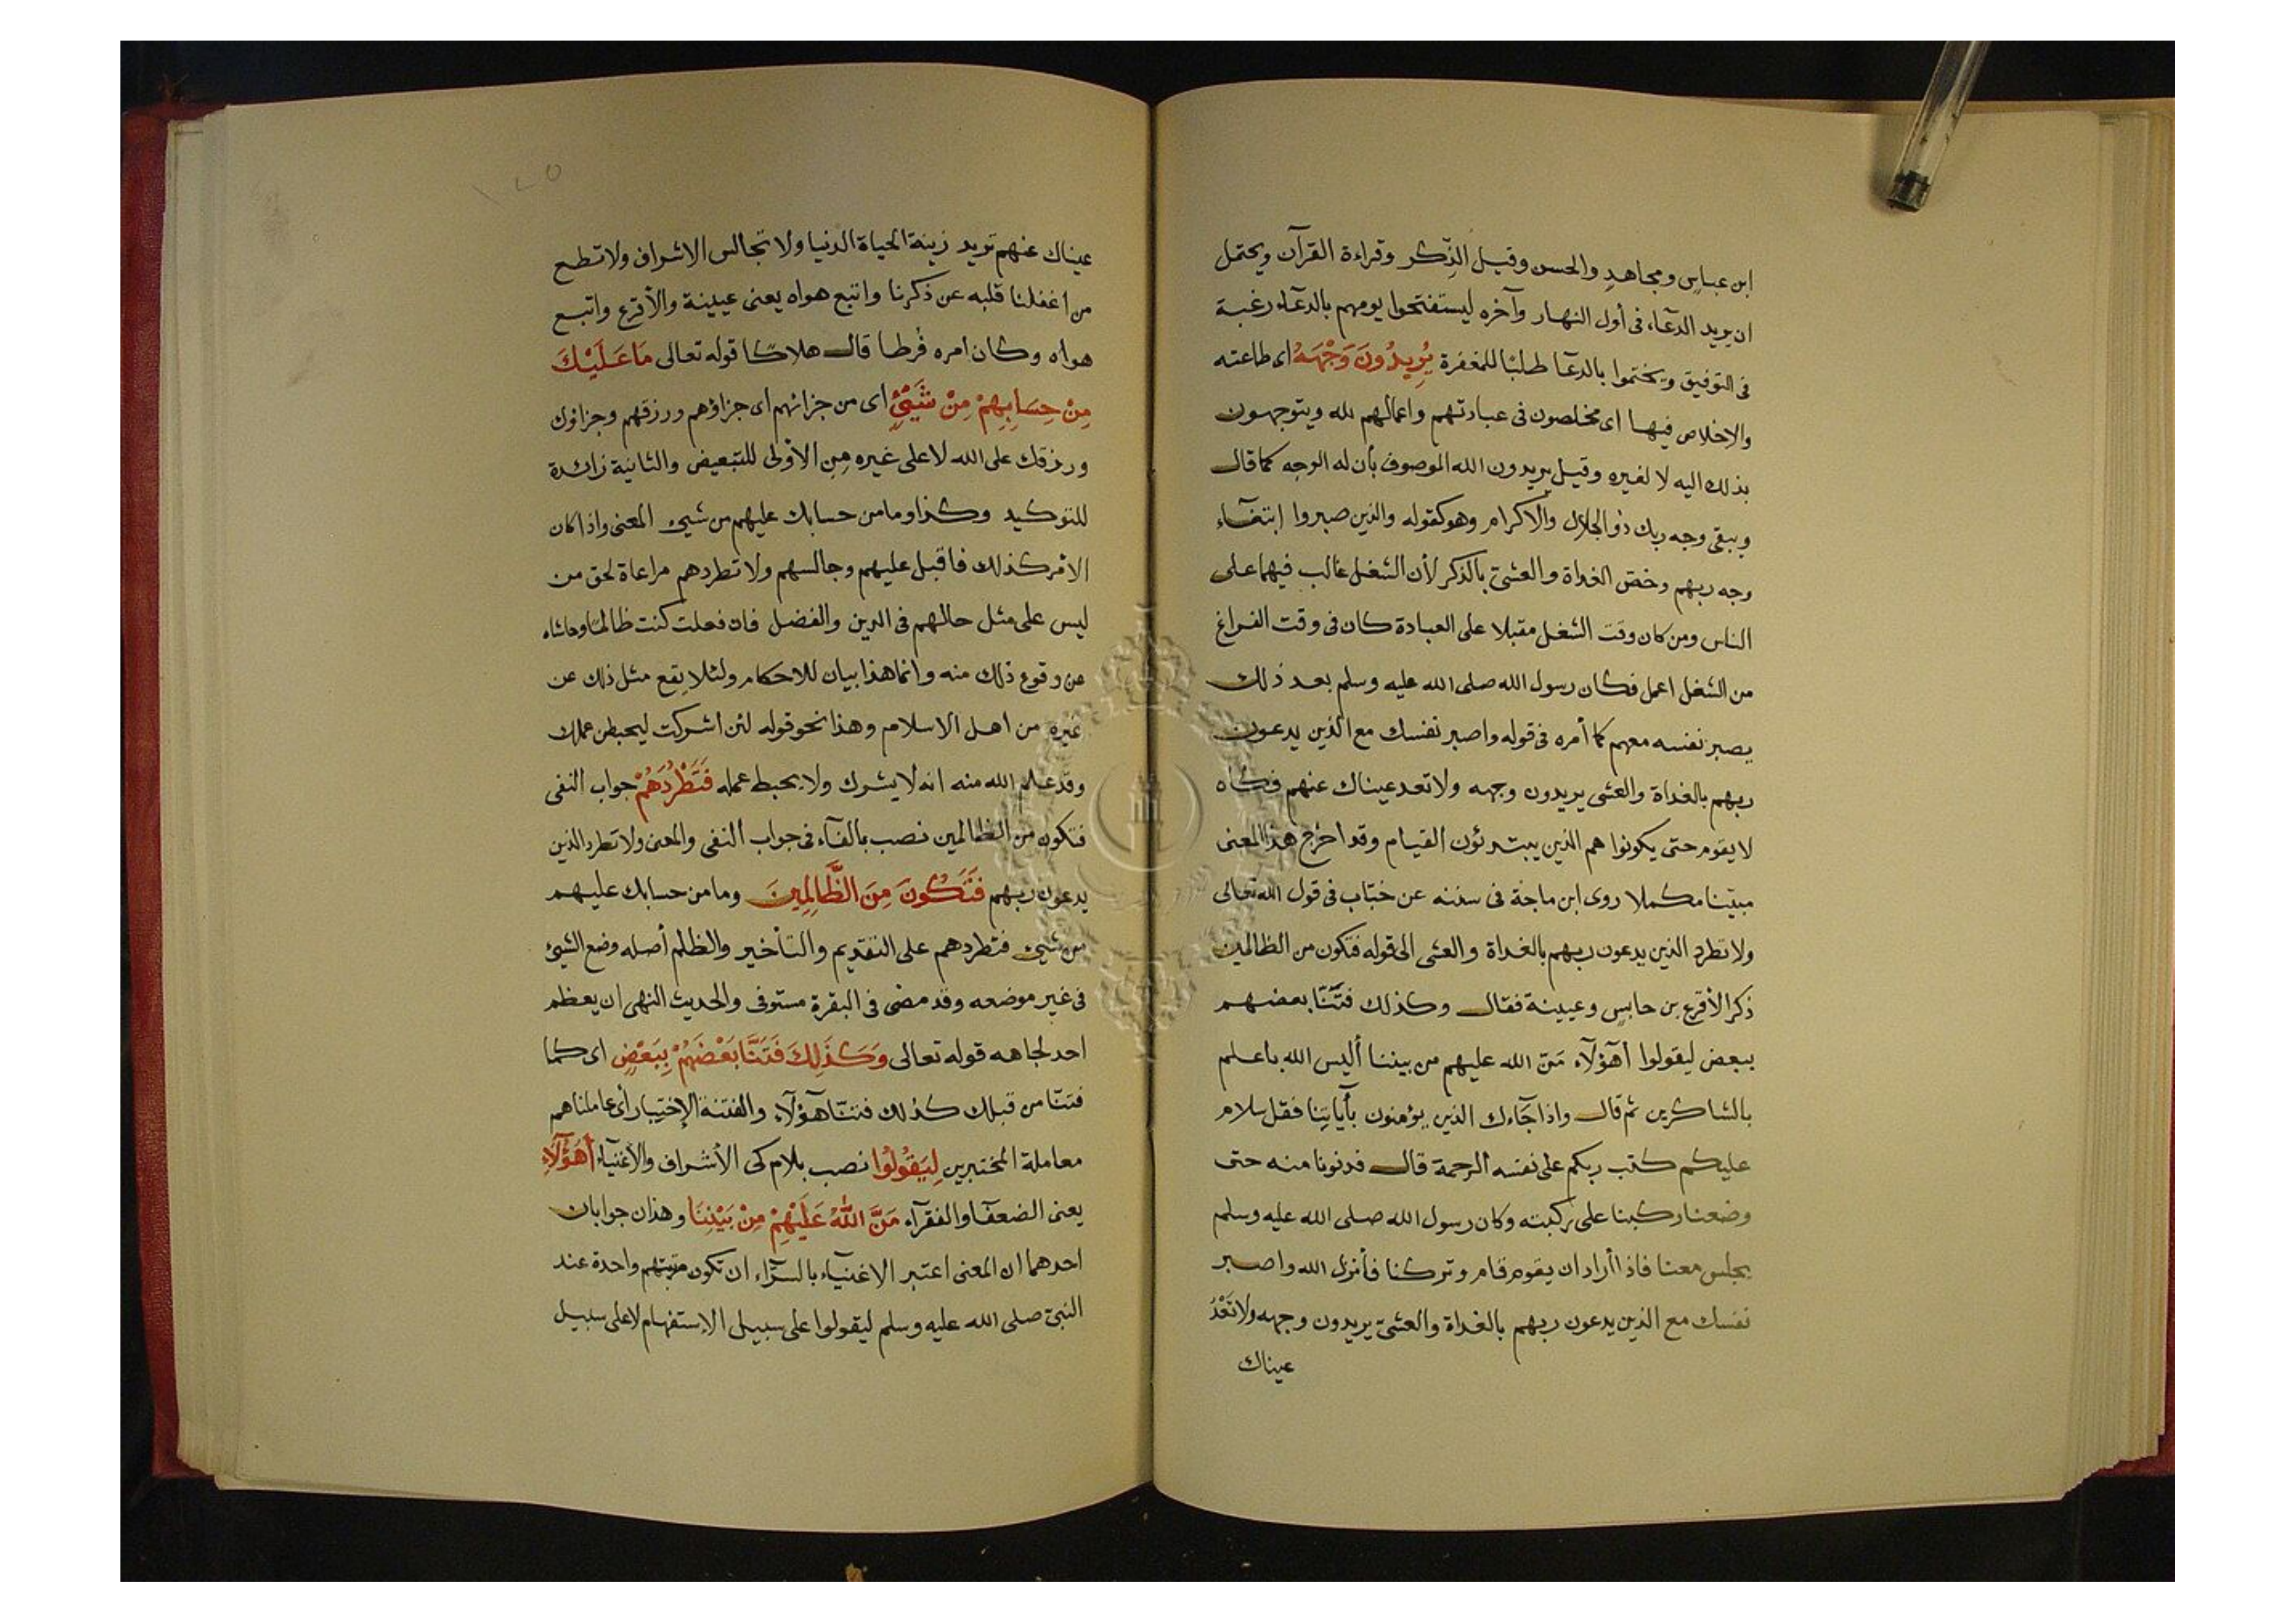 ابن عباسٍ ومجاهدٍ والحسن وقيل الذِّكر وقراءة القرآن ويحتمل
ان يريد الدعاء فى أول النهار وآخره ليستفتحوا يومهم بالدعآء رغبة
فى التوفيق ويختموا بالدعآ طلبًا للمغفرة يُرِيدُونَ وَجْهَهُ اى طاعته
والاخلاص فيها اى مخلصون فى عبادتهم واعمالهم لله ويتوجهون
بذلك اليه لا لغيره وقيل يريدون الله الموصوف بأن له الوجه كما قال
ويبقى وجه ربك ذو الجلال والاكرام وهو كقوله والذين صبروا ابتغآء
وجه ربهم وخصّ الغداة والعشىّ بالذكر لأن الشغل غالب فيهما على
الناس ومن كان وقت الشغل مقبلا على العبادة كان فى وقت الفراغ
من الشغل اعمل فكان رسول الله صلى الله عليه وسلم بعد ذلك
يصبر نفسه معهم كما أمره فى قوله واصبر نفسك مع الذين يدعون
ربهم بالغداة والعشى يريدون وجهه ولا تعد عيناك عنهم فكان
لا يقوم حتى يكونوا هم الذين يبتدئون القيام وقد اخرج هذا المعنى
مبيّنا مكملا روى ابن ماجة فى سننه عن خبّاب فى قول الله تعالى
ولا تطرد الذين يدعون ربهم بالغداة والعشى الى قوله فتكون من الظالمين
ذكر الأقرع بن حابسٍ وعيينة فقال وكذلك فتنّا بعضهم
ببعض ليقولوا أهؤلآء مَنّ الله عليهم من بيننا أليس الله باعلم
بالشاكرين ثم قال واذا جآءك الذين يؤمنون بآياتِنا فقل سلام
عليكم كتب ربكم على نفسه الرحمة قال فدنونا منه حتى
وضعنا ركبنا على ركبته وكان رسول الله صلى الله عليه وسلم
يجلس معنا فاذا أراد ان يقوم قام وتركنا فأنزل الله واصبر
نفسك مع الذين يدعون ربهم بالغداة والعشىّ يريدون وجهه ولا تَعْدُ
عيناك
١٢٥
عيناك عنهم تريد زينة الحياة الدنيا ولا تجالس الاشراف ولا تطع
من اغفلنا قلبه عن ذكرنا واتبع هواه يعنى عيينة والأقرع واتبع
هواه وكان امره فرطا قال هلاكًا قوله تعالى مَا عَلَيْكَ
مِنْ حِسَابِهِمْ مِنْ شَيْئٍ اى من جزائهم اى جزاؤهم ورزقهم وجزاؤك
ورزقك على الله لا على غيره مِن الأولى للتبعيض والثانية زائدة
للتوكيد وكذا وما من حسابك عليهم من شيئ المعنى واذا كان
الامر كذلك فاقبل عليهم وجالسهم ولا تطردهم مراعاة لحق من
ليس على مثل حالهم فى الدين والفضل فان فعلت كنت ظالمًا وحاشاه
من وقوع ذلك منه وانما هذا بيان للاحكام ولئلا يقع مثل ذلك عن
غيره من اهل الاسلام وهذا نحو قوله لئن اشركت ليحبطن عملك
وقد علم الله منه انه لا يشرك ولا يحبط عمله فَتَطْرُدَهُمْ جواب النفى
فتكون من الظالمين نصب بالفآء فى جواب النفى والمعنى ولا تطرد الذين
يدعون ربهم فَتَكُونَ مِنَ الظَّالِمِينَ وما من حسابك عليهم
من شيئ فتطردهم على التقديم والتأخير والظلم أصله وضع الشيئ
فى غير موضعه وقد مضى فى البقرة مستوفى والحديث النهى ان يعظم
احد لجاهه قوله تعالى وَكَذَلِكَ فَتَنَّا بَعْضَهُمْ بِبَعْضٍ اى كما
فتنّا من قبلك كذلك فتنّا هؤلآء والفتنة الإختبار أى عاملناهم
معاملة المختبرين لِيَقُولُوا نصب بلام كى الأشراف والأغنيآء أَهَؤُلَآءِ
يعنى الضعفآء والفقرآء مَنَّ اللّٰهُ عَلَيْهِمْ مِنْ بَيْنِنَا وهذان جوابان
احدهما ان المعنى اعتبر الاغنيآء بالسرّاء ان تكون مرتبتهم واحدة عند
النبىّ صلى الله عليه وسلم ليقولوا على سبيل الإستفهام لا على سبيل